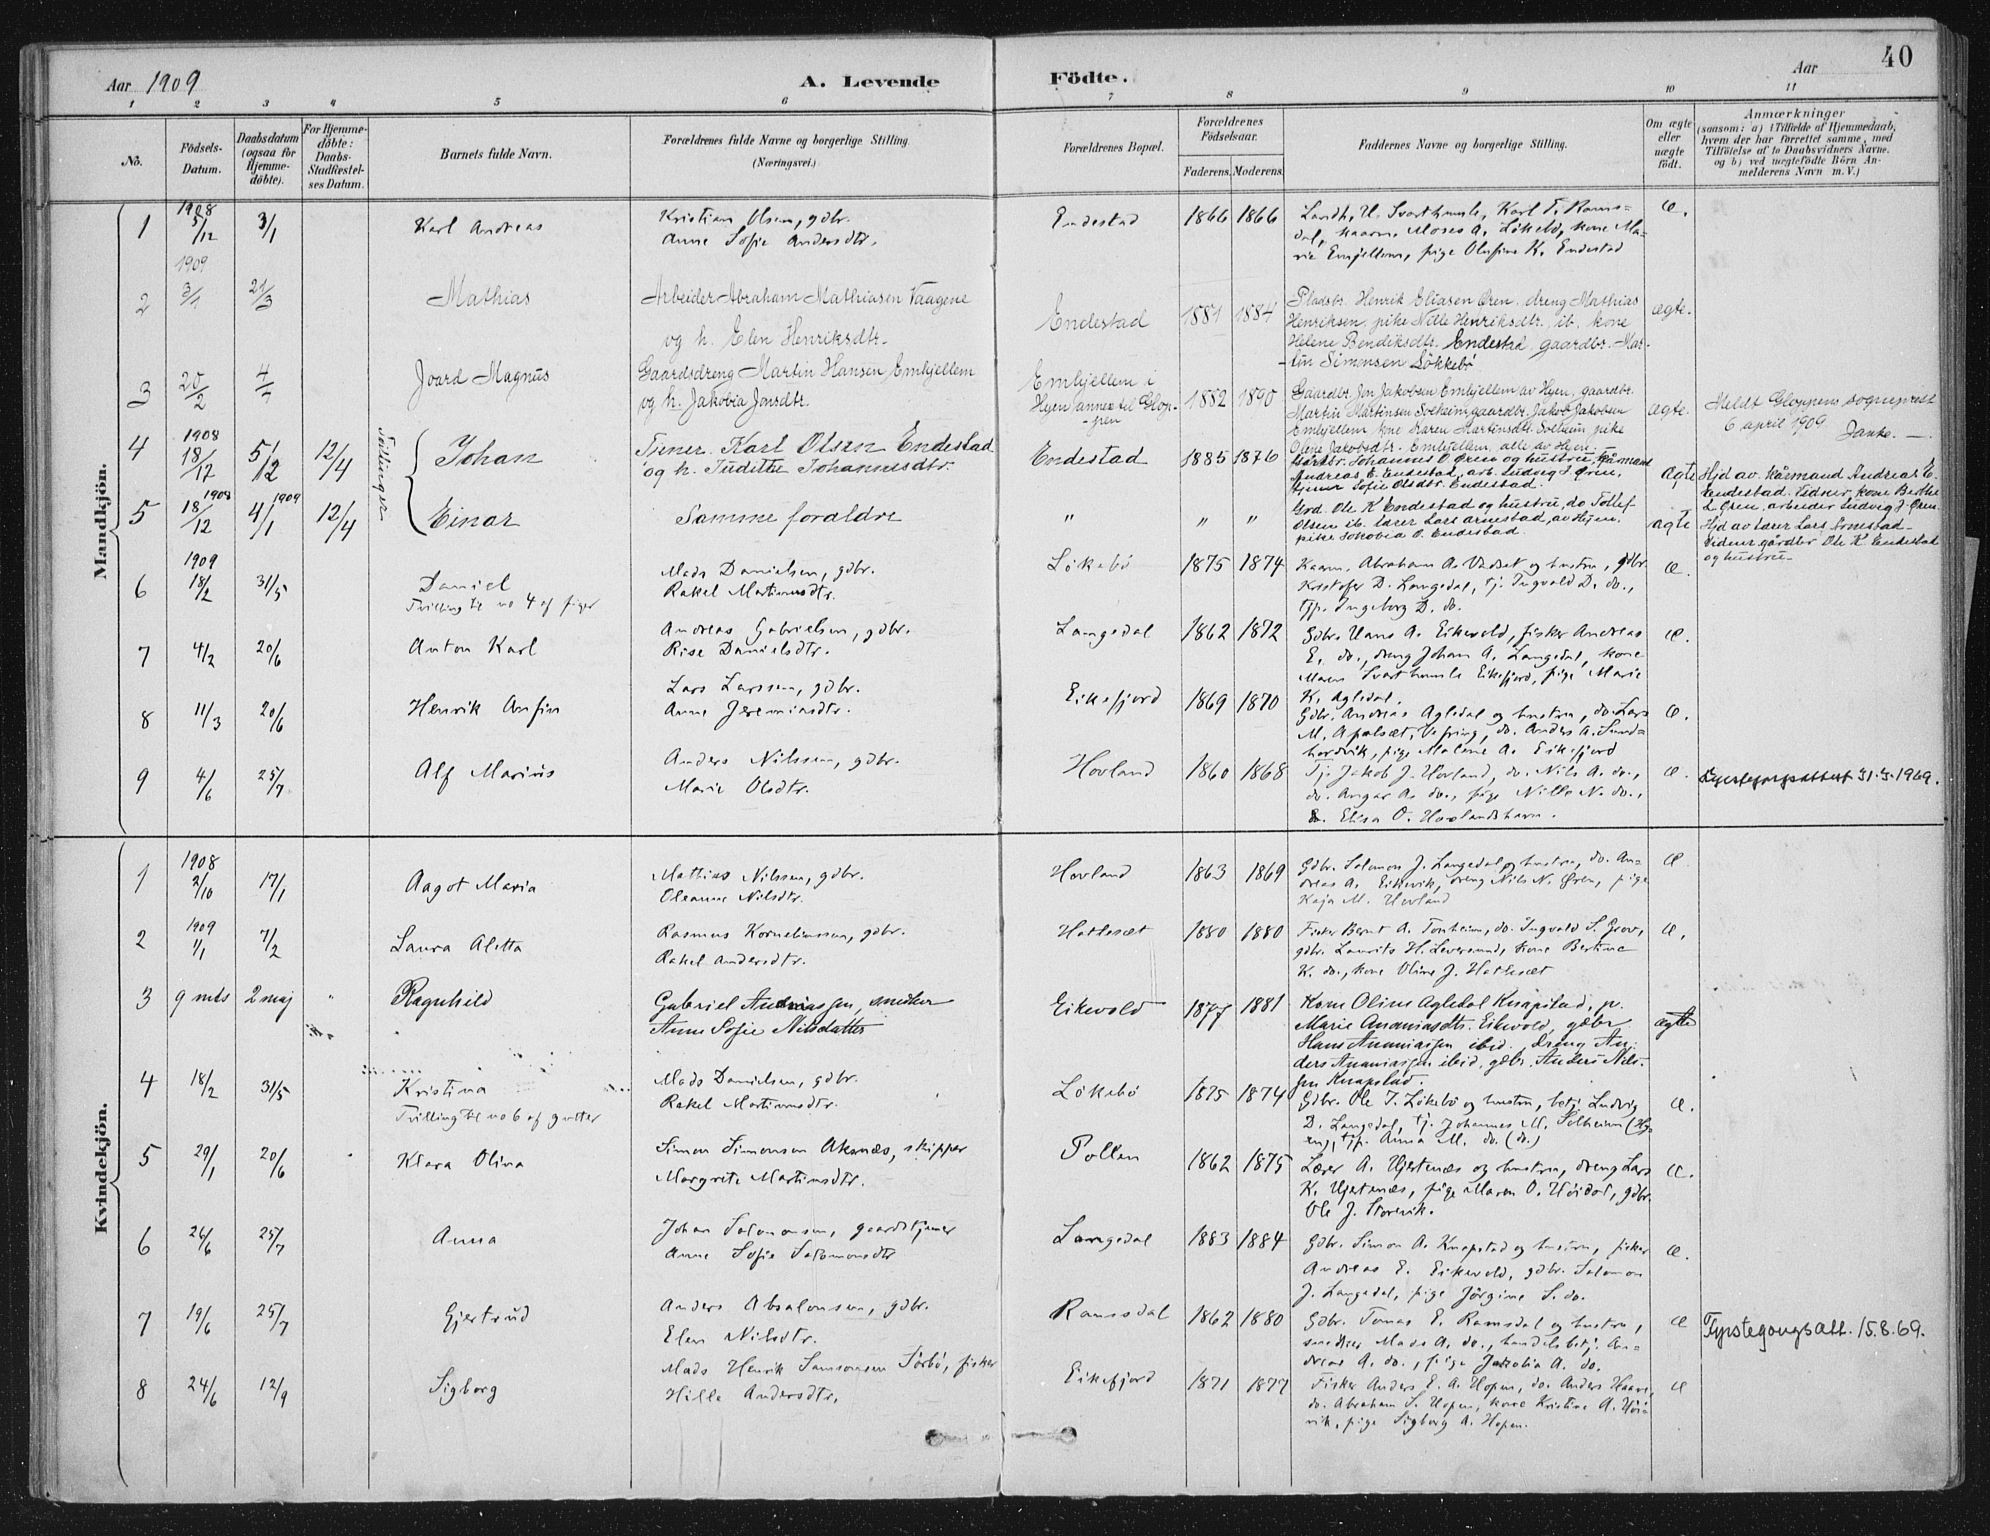 Aar 1909
A. Levende Födte.
Aar
40
1 2 3 4 5 6 7 8 9 10 11
No.
Födsels-Datum.
Daabsdatum (ogsaa for Hjemmedöbte).
For Hjemmedöbte: Daabs-Stadfestelses Datum.
Barnets fulde Navn.
Forældrenes fulde Navne og borgerlige Stilling. (Næringsvei.)
Forældrenes Bopæl.
Forældrenes Födselsaar.
Faderens. Moderens.
Faddernes Navne og borgerlige Stilling.
Om ægte eller uægte födt.
Anmærkninger
(saasom: a) i Tilfælde af Hjemmedaab,
hvem der har forrettet samme, med
Tilföielse af to Daabsvidners Navne.
og b) ved uægtefödte Börn An-
melderens Navn m. V.)
Mandkjön.
1 1908 5/12 3/1 Karl Andreas
Kristian Olsen, gdbr.
Anne Sofie Andersdtr.
Endestad 1866 1866
Landh. H. Svarthumle, Karl T. Rams-
dal, kaarm. Moses A. Lökebö, kone Ma-
rie Emhjellem, pige Olufine K. Endestad
æ.
1909
2 3/1 21/3 Mathias
Arbeider Abraham Mathiasen Vaagene
og h. Elen Henriksdtr.
Endestad 1881 1884
Pladsbr. Henrik Eliasen Øren, dreng Mathias
Henriksen, pike Nille Henriksdtr. ib. kone
Helene Bendiksdtr. Endestad, gaardbr. Mar-
tin Simonsen Løkkebø
ægte.
3 20/2 4/4 Joard Magnus
Gaardsdreng Martin Hansen Emhjellem
og h. Jakobia Jonsdtr.
Emhjellem i
Hyen annex til Glop-
pen
1882 1890
Gaardbr. Jon Jakobsen Emhjellem av Hyen, gaardbr.
Martin Martinsen Solheim, gaardbr. Jakob Jakobsen
Emhjellem, kone Karen Martinsdtr. Solheim, pike
Oline Jakobsdtr. Emhjellem, alle av Hyen
ægte.
Meldt Gloppens sogneprest
6 april 1909.
4 1908 18/12 5/12 12/4 Tvillinger Johan
Tjener Karl Olsen Endestad
og h. Judithe Johannesdtr.
Endestad 1885 1876
Johannes O. Øren og hustru, kårmand
Andreas E. Endestad, arb. Ludvig J. Øren,
tjener Sofie Olsdtr. Endestad.
ægte
Hjd av kårmand Andreas E.
Endestad. Vidner, kone Berthe
L. Øren, arbeider Ludvig J. Øren
5 18/12 1908 4/1 1909 12/4 Einar
Samme foraldre
" " "
Grd. Ole K Endestad og hustru, do Tollef
Olsen ib. lærer Lars Arnestad, av Hyen,
pike Jakobia O. Endestad.
ægte
Hjd av lærer Lars Arnestad
Vidner gårdbr Ole K Endestad
og hustru
1909
6 18/2 31/5 Daniel
Tvilling til no 4 af piger
Mads Danielsen, gdbr.
Rakel Martinusdtr.
Lökebö 1875 1874
Kaarm. Abraham A. Vadset og hustru, gdbr.
Kristofer D. Langedal, tj. Ingvald D. do.,
tjp. Ingeborg D. do.
æ.
7 4/2 20/6 Anton Karl
Andreas Gabrielsen, gdbr.
Rise Danielsdtr.
Langedal 1862 1872
Gdbr. Hans A. Eikevold, fisker Andreas
E. do., dreng Johan A. Langedal, kone
Maren Svarthumle Eikefjord, pige Marie
K. Agledal.
æ.
8 11/3 20/6 Henrik Anfin
Lars Larssen, gdbr.
Anne Jeremiasdtr.
Eikefjord 1869 1870
Gdbr. Andreas Agledal og hustru, do. Lars
M. Apalsæt, Vefring, do. Anders A. Sund-
hordvik, pige Malene A. Eikefjord
æ.
9 4/6 25/7 Alf Marius
Anders Nilssen, gdbr.
Marie Olsdtr.
Hovland 1860 1868
Tj. Jakob J. Hovland, do. Nils A. do.,
do. Ansgar A. do., pige Nille N. do.,
do. Elisa O. Hovlandshavn.
æ.
31.3.1969.
Kvindekjön.
1 1908 2/10 17/1 Aagot Maria
Mathias Nilssen, gdbr.
Oleanne Nilsdtr.
Hovland 1863 1869
Gdbr. Salomon J. Langedal og hustru, do. An-
dreas A. Eikevik, dreng Nils N. Øren, pige
Kaja M. Hovland
æ
2 1909 1/1 7/2 Laura Aletta
Rasmus Korneliussen, gdbr.
Rakel Andersdtr.
Hatleset 1880 1880
Fisker Bernt A. Tonheim, do. Ingvald S. Grov,
gdbr. Laurits H. Leversund, kone Bertine
K. do., kone Oline J. Hatleset
æ.
3 9 mts 2 maj " Ragnhild
Gabriel Ananiassen, snedker
Anne Sofie Nilsdatter
Eikevold 1877 1881
Kone Oline Agledal Knapstad, p.
Marie Ananiasdtr. Eikevold, gdbr
Hans Ananiassen ibid., dreng An-
ders Ananiassen ibid, gdbr. Anders Nils-
sen Knapstad.
ægte
4 18/2 31/5 Kristina
Tvilling til no 6 af gutter
Mads Danielsen, gdbr.
Rakel Martinusdtr.
Lökebö 1875 1874
Gdbr. Ole T. Lökebö og hustru, betj. Ludvig
D. Langedal, tj. Johannes M. Solheim (Hy-
en), tjp. Anna M. do. (do.)
æ.
5 29/1 20/6 Klara Olina
Simon Simonsen Aksnæs, skipper
Margrete Martinsdtr.
Pollen 1862 1875
Lærer A. Hjertenæs og hustru, dreng Lars
K. Hjertenæs, pige Maren O. Höidal, gdbr.
Ole J. Storevik.
æ.
6 26/6 25/7 Anna
Johan Salomonsen, gaardstjener
Anne Sofie Salomonsdtr
Langedal 1883 1884
Gdbr. Simon A. Knapstad og hustru, fisker
Andreas E. Eikevold, gdbr. Salomon
J. Langedal, pige Jörgine S. do.
æ.
7 19/6 25/7 Gjertrud
Anders Absalonsen, gdbr.
Elen Nilsdtr.
Ramsdal 1862 1880
Gdbr. Tomas E. Ramsdal og hustru,
snedker Mads A. do., handelsbetj. An-
dreas A. do., pige Jakobia A. do.
æ
Fyrstegongsatt. 15.8.69.
8 24/6 12/9 Sigborg
Mads Henrik Samsonsen Sörbö, fisker
Hille Andersdtr.
Eikefjord 1871 1877
Fisker Anders E. A. Hopen, do. Anders Haave,
do. Abraham S. Hopen, kone Kristine A. Höi-
vik, pige Sigborg A. Hopen.
æ